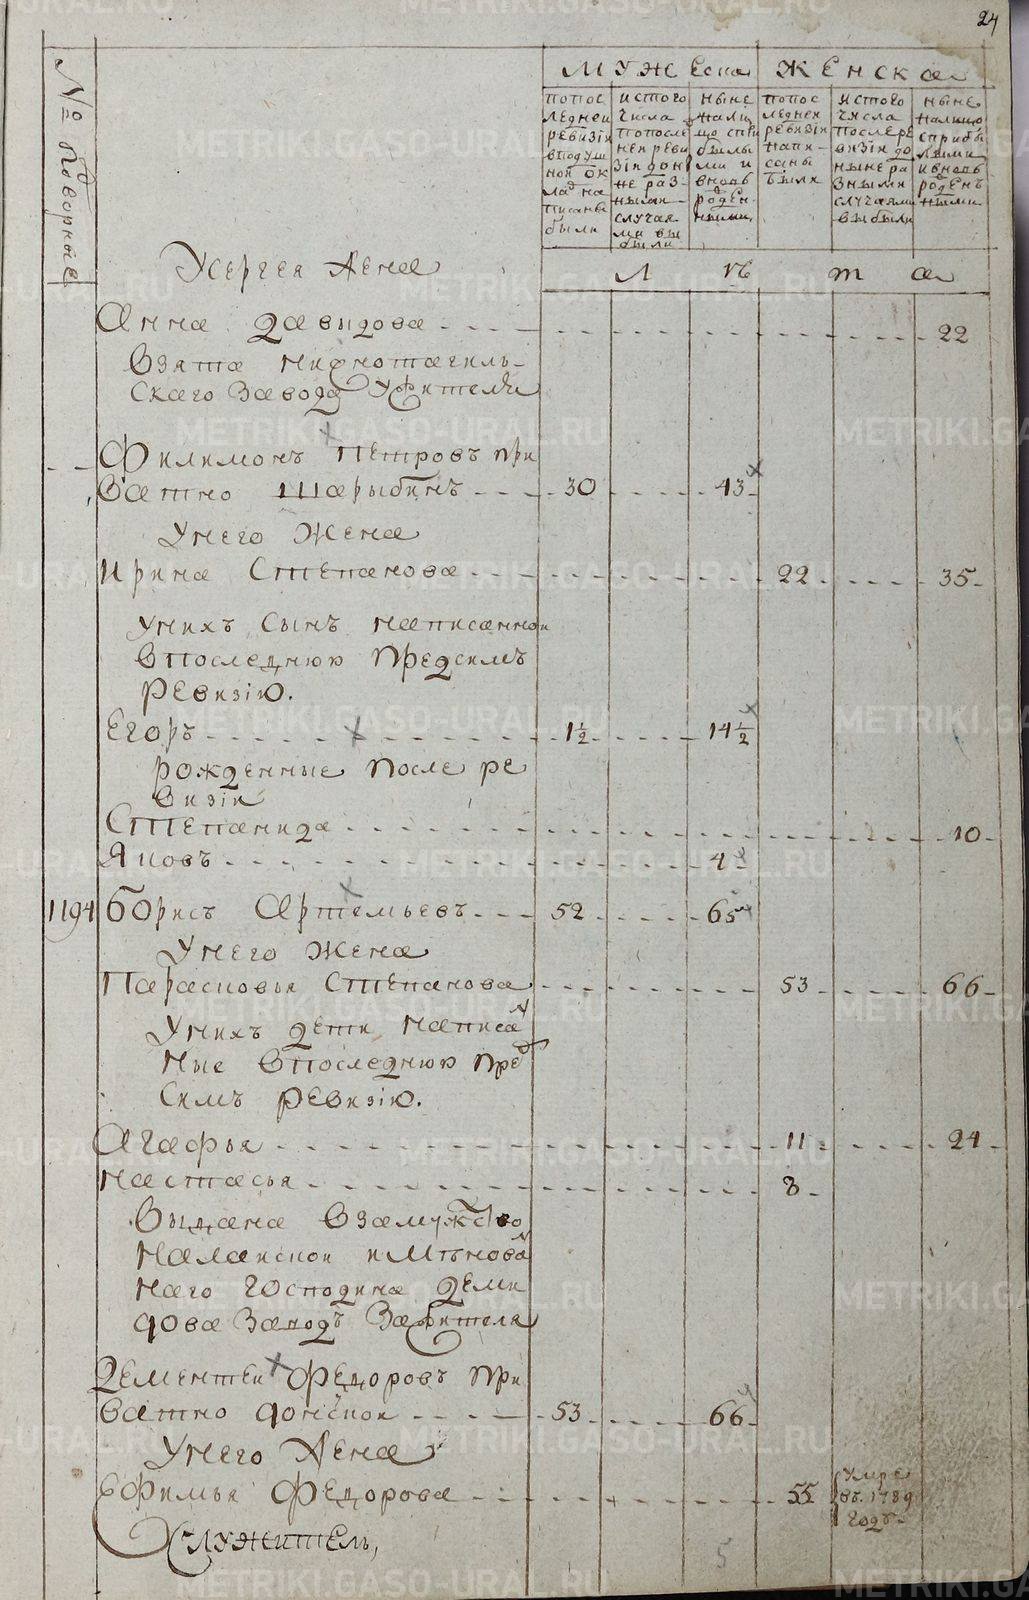 24
№ подворные
Мужеска
Женска
попос
ледней
ревизiи
вподуш
ной ок
ладъ на
писаны
были
истого
числа
попосле
ней реви
зiи до н
не раз
ными
случая
ми вы
были
ныне
нали
цо спри
былы
ми и
вновь
рожден
ными
попос
ледней
ревизiи
напи
саны
были
истого
числа
после ре
визiи до
ныне ра
зными
случаями
выбыли
ныне
налицо
сприбы
лыми
ивновь
рожденъ
ными
Лѣта
Усергея жена
Анна Давыдова 22
Взята нижнотагиль
скаго завода Ужителя
Филимонъ Петровъ при
ватно Шарыбинъ 30 43
Унего Жена
Ирина Степанова 22 35
Унихъ сынъ написанной
впоследнюю предсимъ
ревизiю.
Егоръ 1½ 14½
рожденные после ре
визiи
Степанида 10
Яковъ 4
1194 Борисъ Артемьевъ 52 65
Унего Жена
Парасковья Степанова 53 66
Унихъ дети написа
ные впоследнюю пред
симъ ревизiю.
Агафья 11 24
Настасья 8
Выдана взамужство
налайской имѣнова
наго господина Деми
дова заводъ Зажителя
Дементей Федоровъ при
ватно донской 53 66
Унего жена
Ефимья Федорова 55 Умре
въ 1789
годъ
Служитель,
5
METRIKI.GASO-URAL.RU